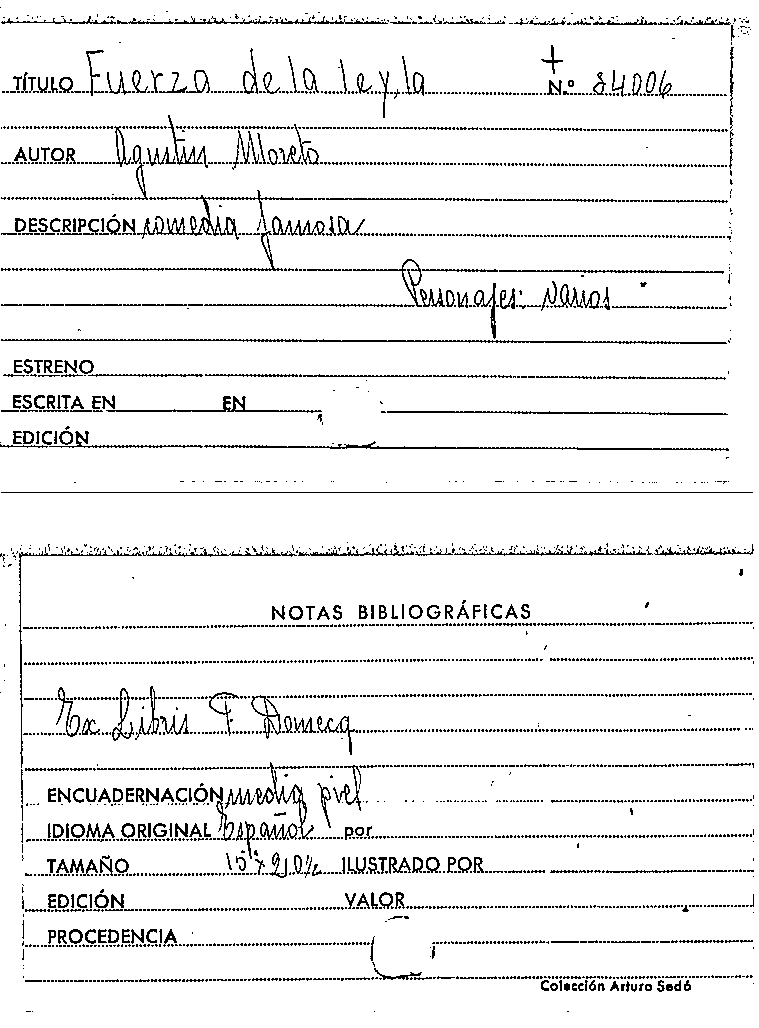 TÍTULO Fuerza de la ley, la +
N.º 84006
AUTOR Agustin Moreto
DESCRIPCIÓN comedia famosa
Personajes: varios
ESTRENO
ESCRITA EN EN
EDICIÓN
NOTAS BIBLIOGRÁFICAS
Ex Libris F Domecq
ENCUADERNACIÓN media piel
IDIOMA ORIGINAL Español por
TAMAÑO ILUSTRADO POR
EDICIÓN VALOR
PROCEDENCIA
Colección Arturo Sedó